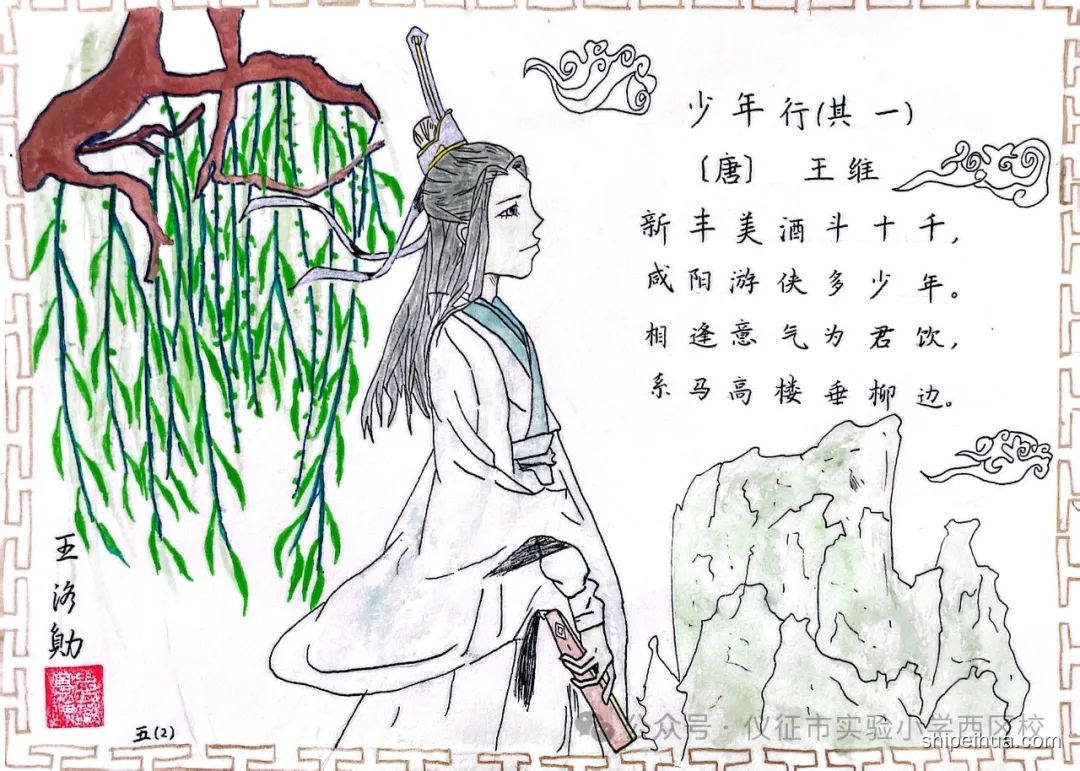 少年行(其一)
〔唐〕 王维
新丰美酒斗十千，
咸阳游侠多少年。
相逢意气为君饮，
系马高楼垂柳边。
王洛勋
五(2)
公众号·仪征市实验小学西区校
shipeihua.com